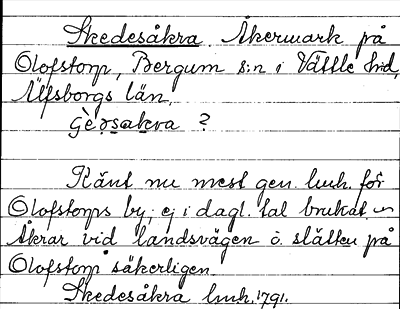 Skedesåkra, Åkermark på
Olofstorp, Bergum s:n i Vättle hd,
Älfsborgs län.
ʃè̱ǝsakra ?
Känt nu mest gen. lmh. för
Olofstorps by; ej i dagl. tal brukat.
Åkrar vid landsvägen ö. slätten på
Olofstorp säkerligen.
Skedesåkra lmh. 1791.